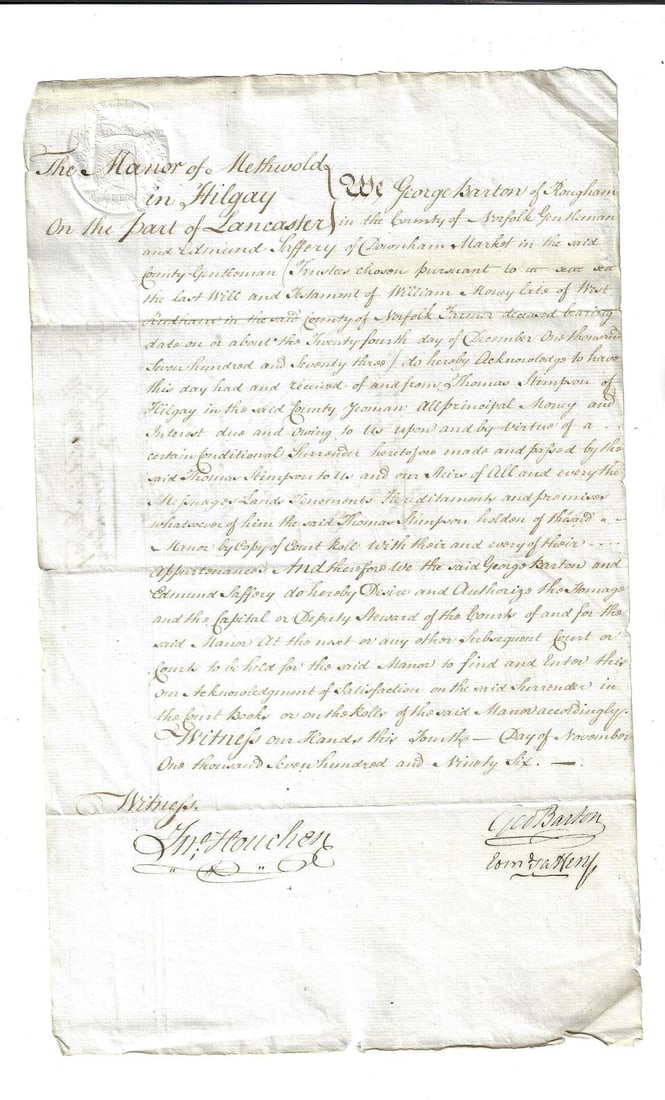 The Manor of Methwold
in Hilgay
On the part of Lancaster
We George Barton of Rougham
in the County of Norfolk Gentleman
and Edmund Saffery of Downham Market in the said
County Gentleman (Trustees chosen pursuant to
the last Will and Testament of William Money late of West
Rudham in the said County of Norfolk Farmer deceased bearing
date on or about the Twenty fourth day of December One thousand
Seven hundred and Seventy three) do hereby Acknowledge to have
this day had and received of and from Thomas Stimpson of
Hilgay in the said County Yeoman All principal Money and
Interest due and Owing to Us upon and by Virtue of a . . .
certain Conditional Surrender heretofore made and passed by the
said Thomas Stimpson to Us and our Heirs of All and every the
Messuages Lands Tenements Hereditaments and premises
whatsoever of him the said Thomas Stimpson holden of the said
Manor by Copy of Court Roll With their and every of their ....
Appurtenances And therefore We the said George Barton and
Edmund Saffery do hereby Desire and Authorize the Homage
and the Capital or Deputy Steward of the Courts of and for the
said Manor At the next or any other Subsequent Court or
Courts to be held for the said Manor to find and Enter this
our Acknowledgment of Satisfaction on the said Surrender in
the Court Books or on the Rolls of the said Manor accordingly.
Witness our Hands this Fourth — Day of November
One thousand Seven hundred and Ninety Six. —
Witness.
Jno. Houchen
Geo Barton
Edmd Saffery